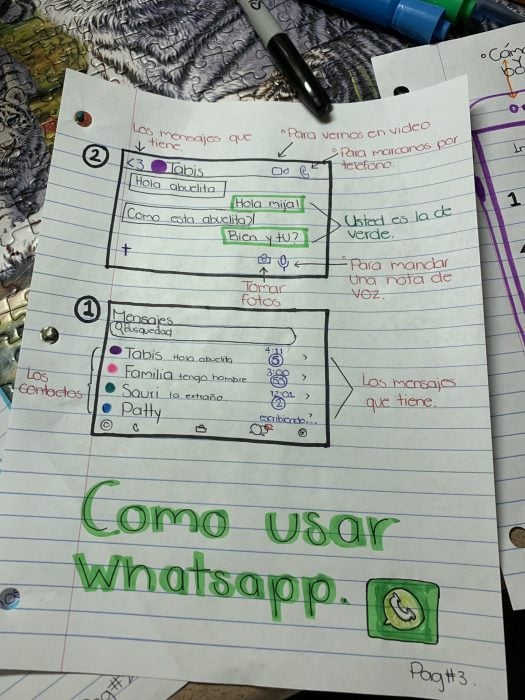 Los mensajes que tiene.
°Para vernos en video
°Para marcanos por telefono.
2
<3 Tabis
Hola abuelita
Hola mija!
Como esta abuelita?
Bien y tu?
Usted es la de verde.
+
Tomar fotos
°Para mandar una nota de voz.
1
Mensajes
Busquedad
Tabis Hola abuelita 4:11 5 >
Familia tengo hambre 3:00 55 >
Sauri la extraño. 12:01 2 >
Patty escribiendo... >
Los contactos
Los mensajes que tiene.
Como usar
whatsapp.
Pag#3.
°Cóm
1
Pag#